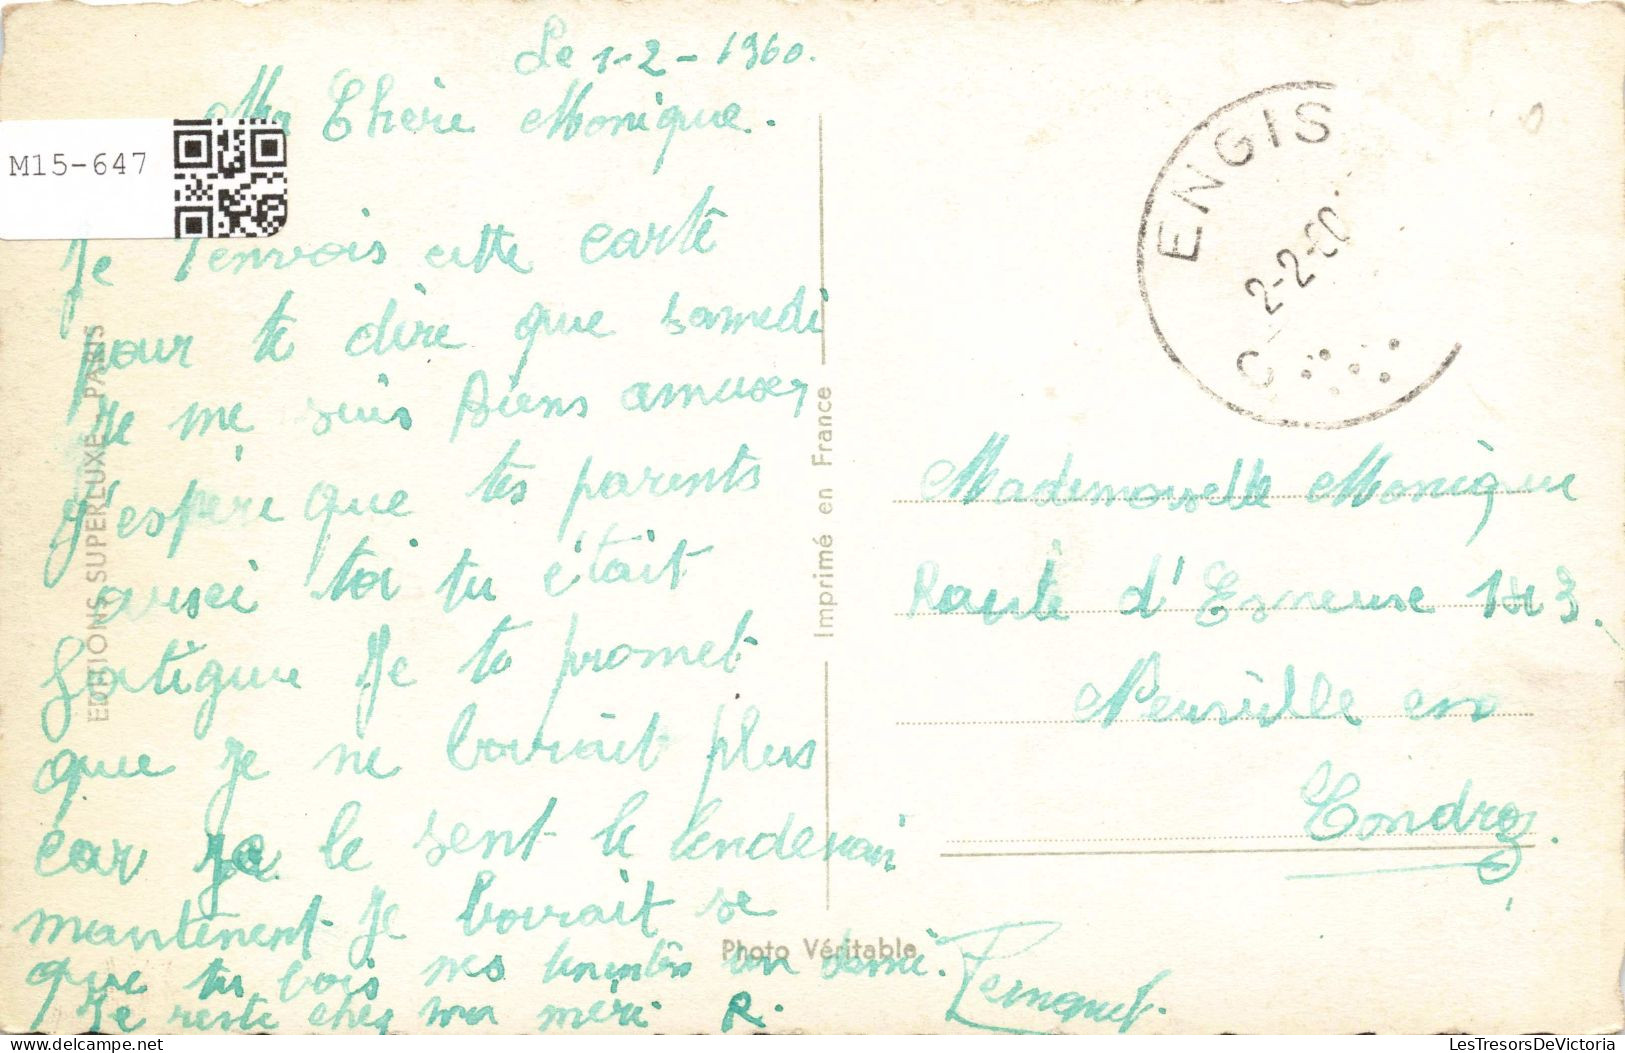 Le 1-2-1960.
Ma Chère Monique.
M15-647
Je t'envois cette carte
pour te dire que samedi
Je me suis biens amuser
j'espère que tes parents
aussi toi tu était
fatigue Je te promet
que je ne boirait plus
car je le sent le lendemain
maintenent Je boirait se
que tu bois mes un demi.
Je reste chez ma mère R.
EDITIONS SUPERLUXE - PARIS
Imprimé en France
Photo Véritable
ENGIS
2-2-60
C
Mademoiselle Monique
Route d'Esneuse 113.
Neuville en
Condroz.
LesTresorsDeVictoria